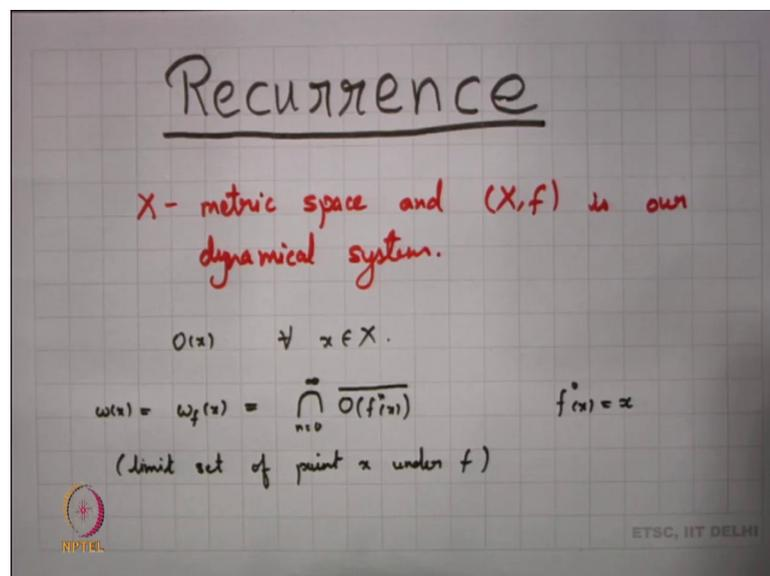 Recurrence
X - metric space and (X, f) is our
dynamical system.
O(x) ∀ x ∈ X.
ω(x) = ω_f(x) = ⋂_{n=0}^{∞} \overline{O(f^n(x))} f^0(x) = x
(limit set of point x under f)
NPTEL
ETSC, IIT DELHI